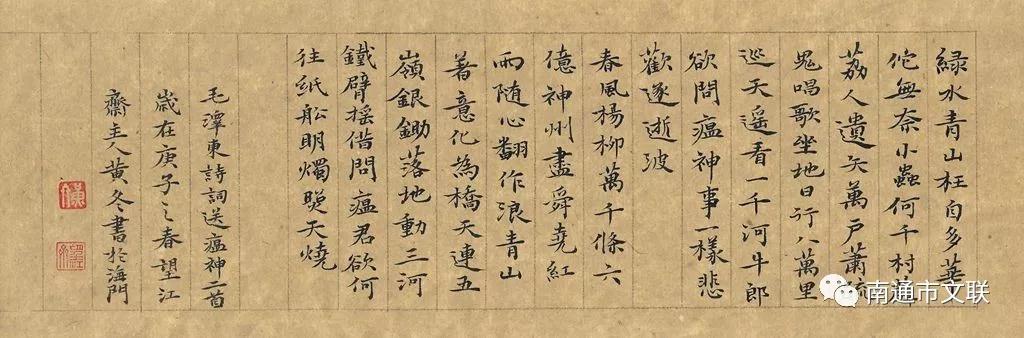 緑水青山枉自多華
佗無奈小蟲何千村
荔人遺矢萬户蕭疏
鬼唱歌坐地日行八萬里
巡天遥看一千河牛郎
欲問瘟神事一樣悲
歡逐逝波
春風楊柳萬千條六
億神州盡舜堯紅
雨随心翻作浪青山
著意化為橋天連五
嶺銀鋤落地動三河
鐵臂摇借問瘟君欲何
往紙船明燭照天燒
毛澤東詩詞送瘟神二首
歲在庚子之春望江
齋主人黄冬書於海門
南通市文联